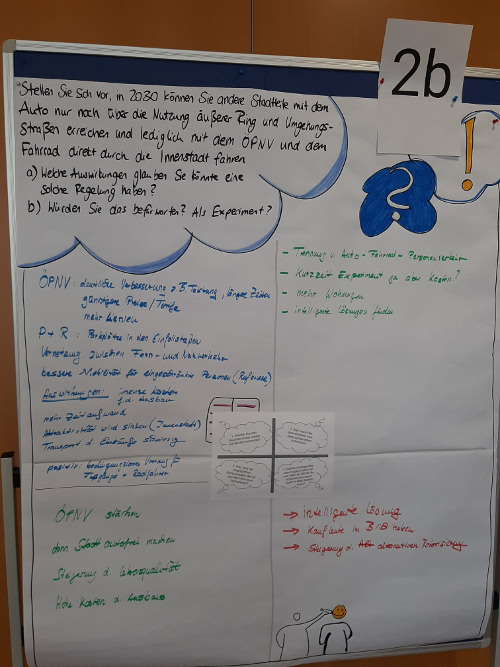 2b
Stellen Sie sich vor, in 2030 können Sie andere Stadtteile mit dem
Auto nur noch über die Nutzung äußerer Ring und Umgehungs-
straßen erreichen und lediglich mit dem ÖPNV und dem
Fahrrad direkt durch die Innenstadt fahren
a) Welche Auswirkungen glauben Sie könnte eine
solche Regelung haben?
b) Würden Sie das befürworten? Als Experiment?
!
?
ÖPNV: deutliche Verbesserung z.B. Taktung, längere Zeiten
günstigere Preise/Tarife
mehr Linien
P+R: Parkplätze in den Einfallstraßen
Vernetzung zwischen Fern- und Nahverkehr
bessere Mobilität für eingeschränkte Personen
Auswirkungen: immense Kosten
f.d. Ausbau
mehr Zeitaufwand
Attraktivität wird sinken (Innenstadt)
Transport d. Einkäufe schwierig
positiv:
Fußgänger + Radfahrer
- Trennung v. Auto-Fahrrad-Personenverkehr
- Kurzzeit Experiment ja aber Kosten?
- mehr Wohnungen
- intelligente Lösungen finden
ÖPNV stärken
dann Stadt autofrei machen
Steigerung d. Lebensqualität
Hohe Kosten d. Ausbaus
→ intelligente Lösung
→ Kaufleute im
→ Steigerung d. alternativen